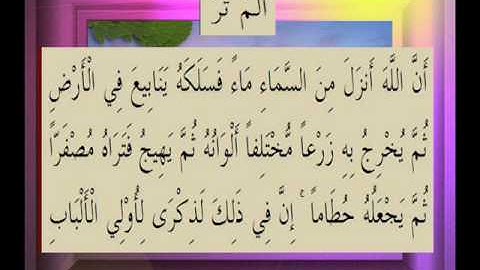 الم تر
أَنَّ اللَّهَ أَنزَلَ مِنَ السَّمَاءِ مَاءً فَسَلَكَهُ يَنَابِيعَ فِي الْأَرْضِ
ثُمَّ يُخْرِجُ بِهِ زَرْعاً مُّخْتَلِفاً أَلْوَانُهُ ثُمَّ يَهِيجُ فَتَرَاهُ مُصْفَرّاً
ثُمَّ يَجْعَلُهُ حُطَاماً ۚ إِنَّ فِي ذَلِكَ لَذِكْرَى لِأُوْلِي الْأَلْبَابِ